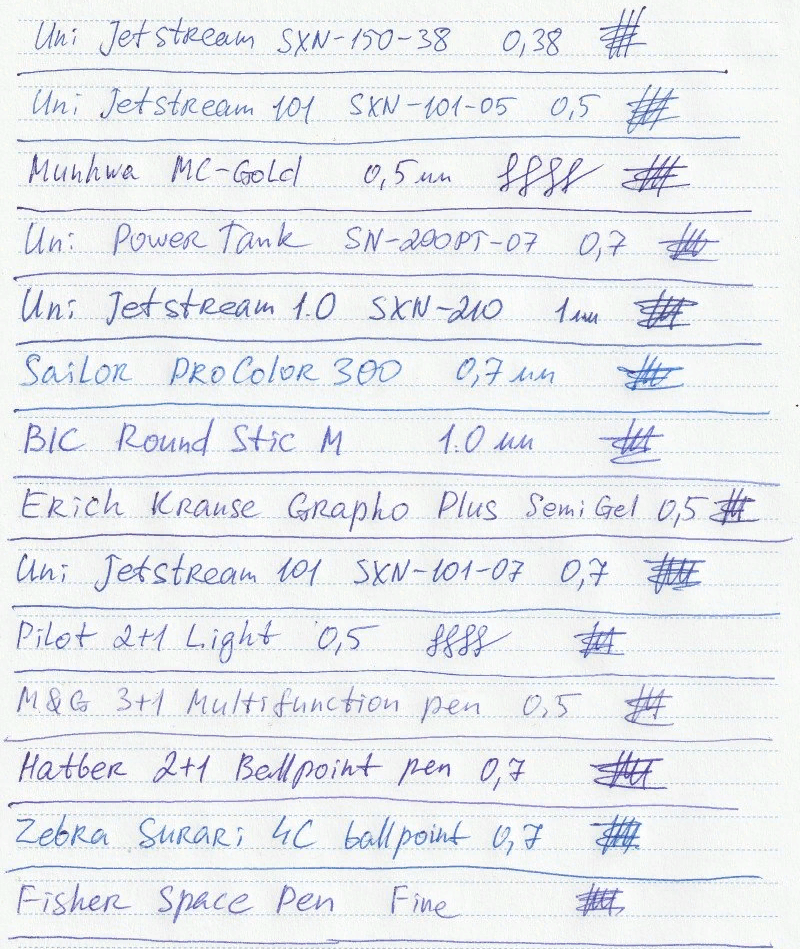 Uni Jetstream SXN-150-38 0,38
Uni Jetstream 101 SXN-101-05 0,5
Munhwa MC-Gold 0,5 mm
Uni Power Tank SN-200PT-07 0,7
Uni Jetstream 1.0 SXN-210 1 mm
Sailor ProColor 300 0,7 mm
BIC Round Stic M 1.0 mm
Erich Krause Grapho Plus Semi Gel 0,5
Uni Jetstream 101 SXN-101-07 0,7
Pilot 2+1 Light 0,5
M&G 3+1 Multifunction pen 0,5
Hatber 2+1 Ballpoint pen 0,7
Zebra Surari 4C ballpoint 0,7
Fisher Space Pen Fine